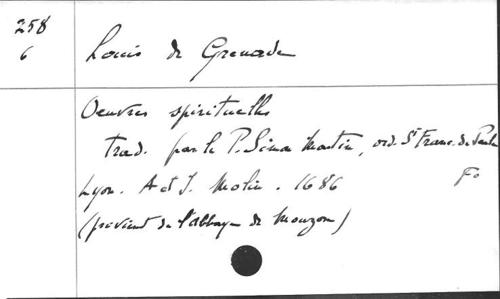 258
6
Louis de Grenade
Oeuvres spirituelles
trad. par le P. Simon Martin, ord. St Franc. de Paule
Lyon. A et J. Molin. 1686 Fo
(provient de l'abbaye de Mouzon)